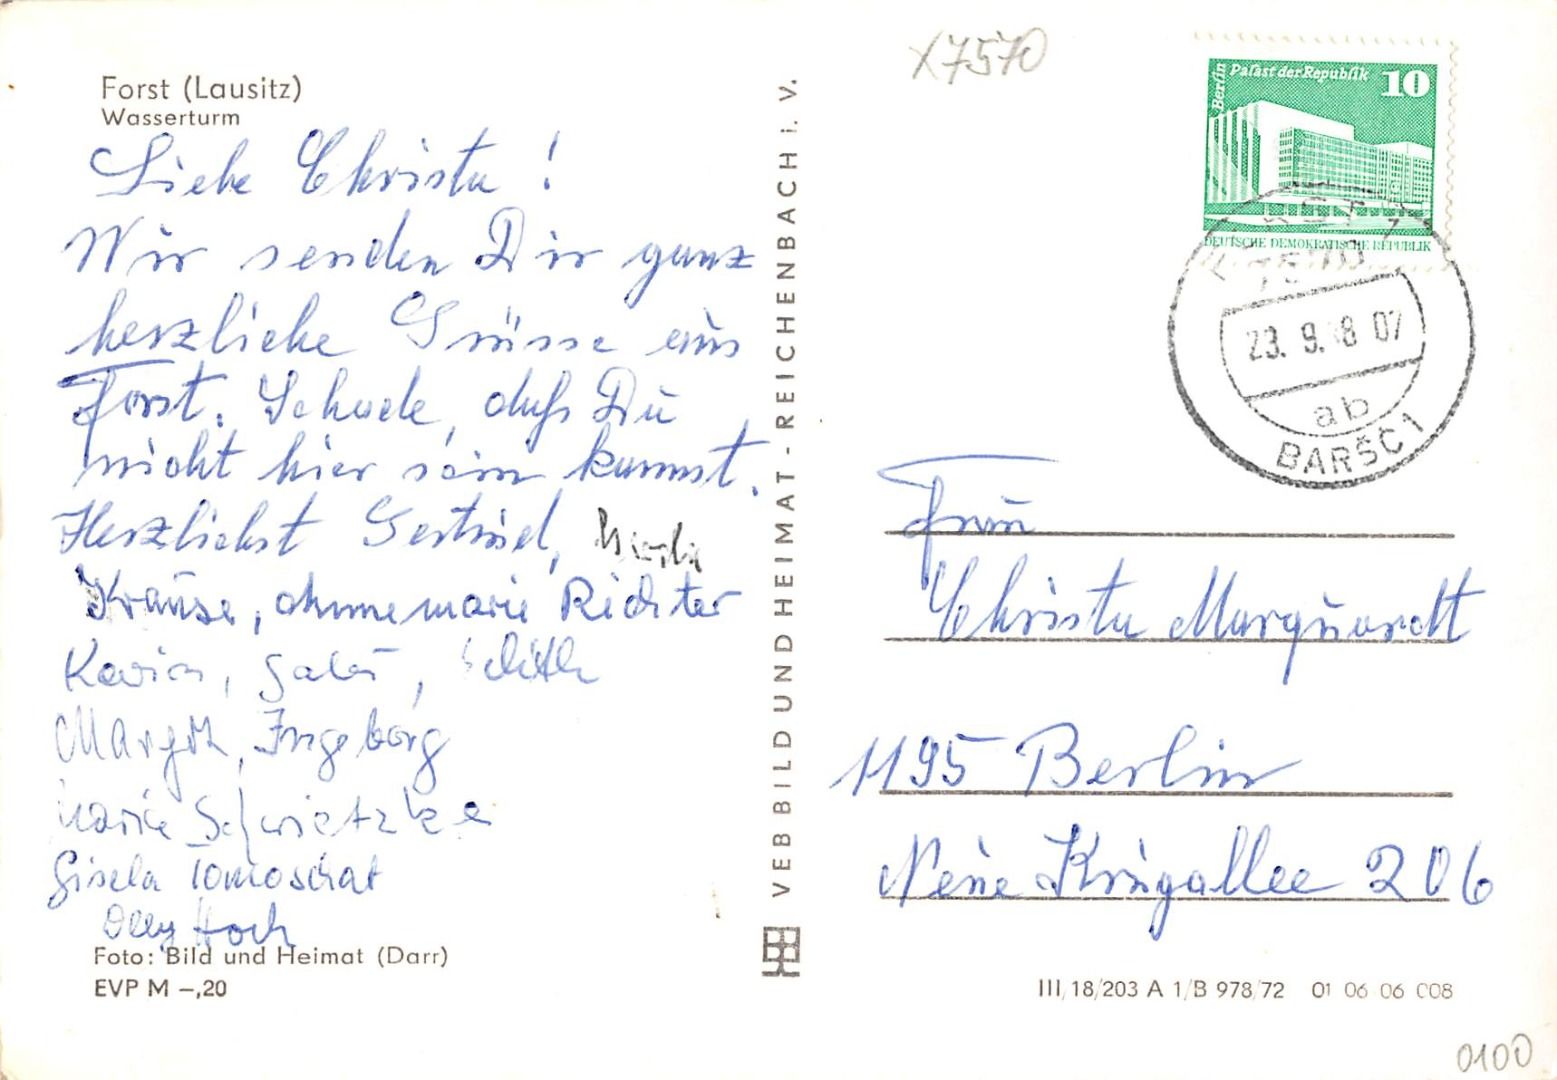 Forst (Lausitz)
Wasserturm
Liebe Christa!
Wir senden Dir ganz
herzliche Grüsse aus
Forst. Schade, daß Du
nicht hier sein kannst.
Herzlichst Gertrud,
Krause, Annemarie Richter
Karin, Gabi, Edith
Margot, Ingeborg
Maria Schwietzke
Gisela Tomoschat
Olly Hoch
Foto: Bild und Heimat (Darr)
EVP M –,20
VEB BILD UND HEIMAT - REICHENBACH i. V.
X7570
Berlin
Palast der Republik 10
DEUTSCHE DEMOKRATISCHE REPUBLIK
FORST 1
7570
23. 9. 8 07
ab
BARŠĆ 1
Frau
Christa Marquardt
1195 Berlin
Neue Krugallee 206
III/18/203 A 1/B 978/72 01 06 06 008
0100